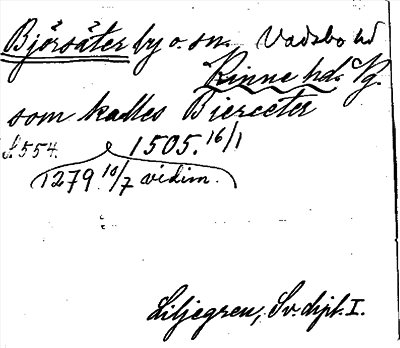 Björsäter by o. sn. Vadsbo hd
Kinne hd. Vg.
som kalles Bierceter
S. 554. 1505. 16/1
1279 10/7 vidim.
Liljegren, Sv dipl. I.